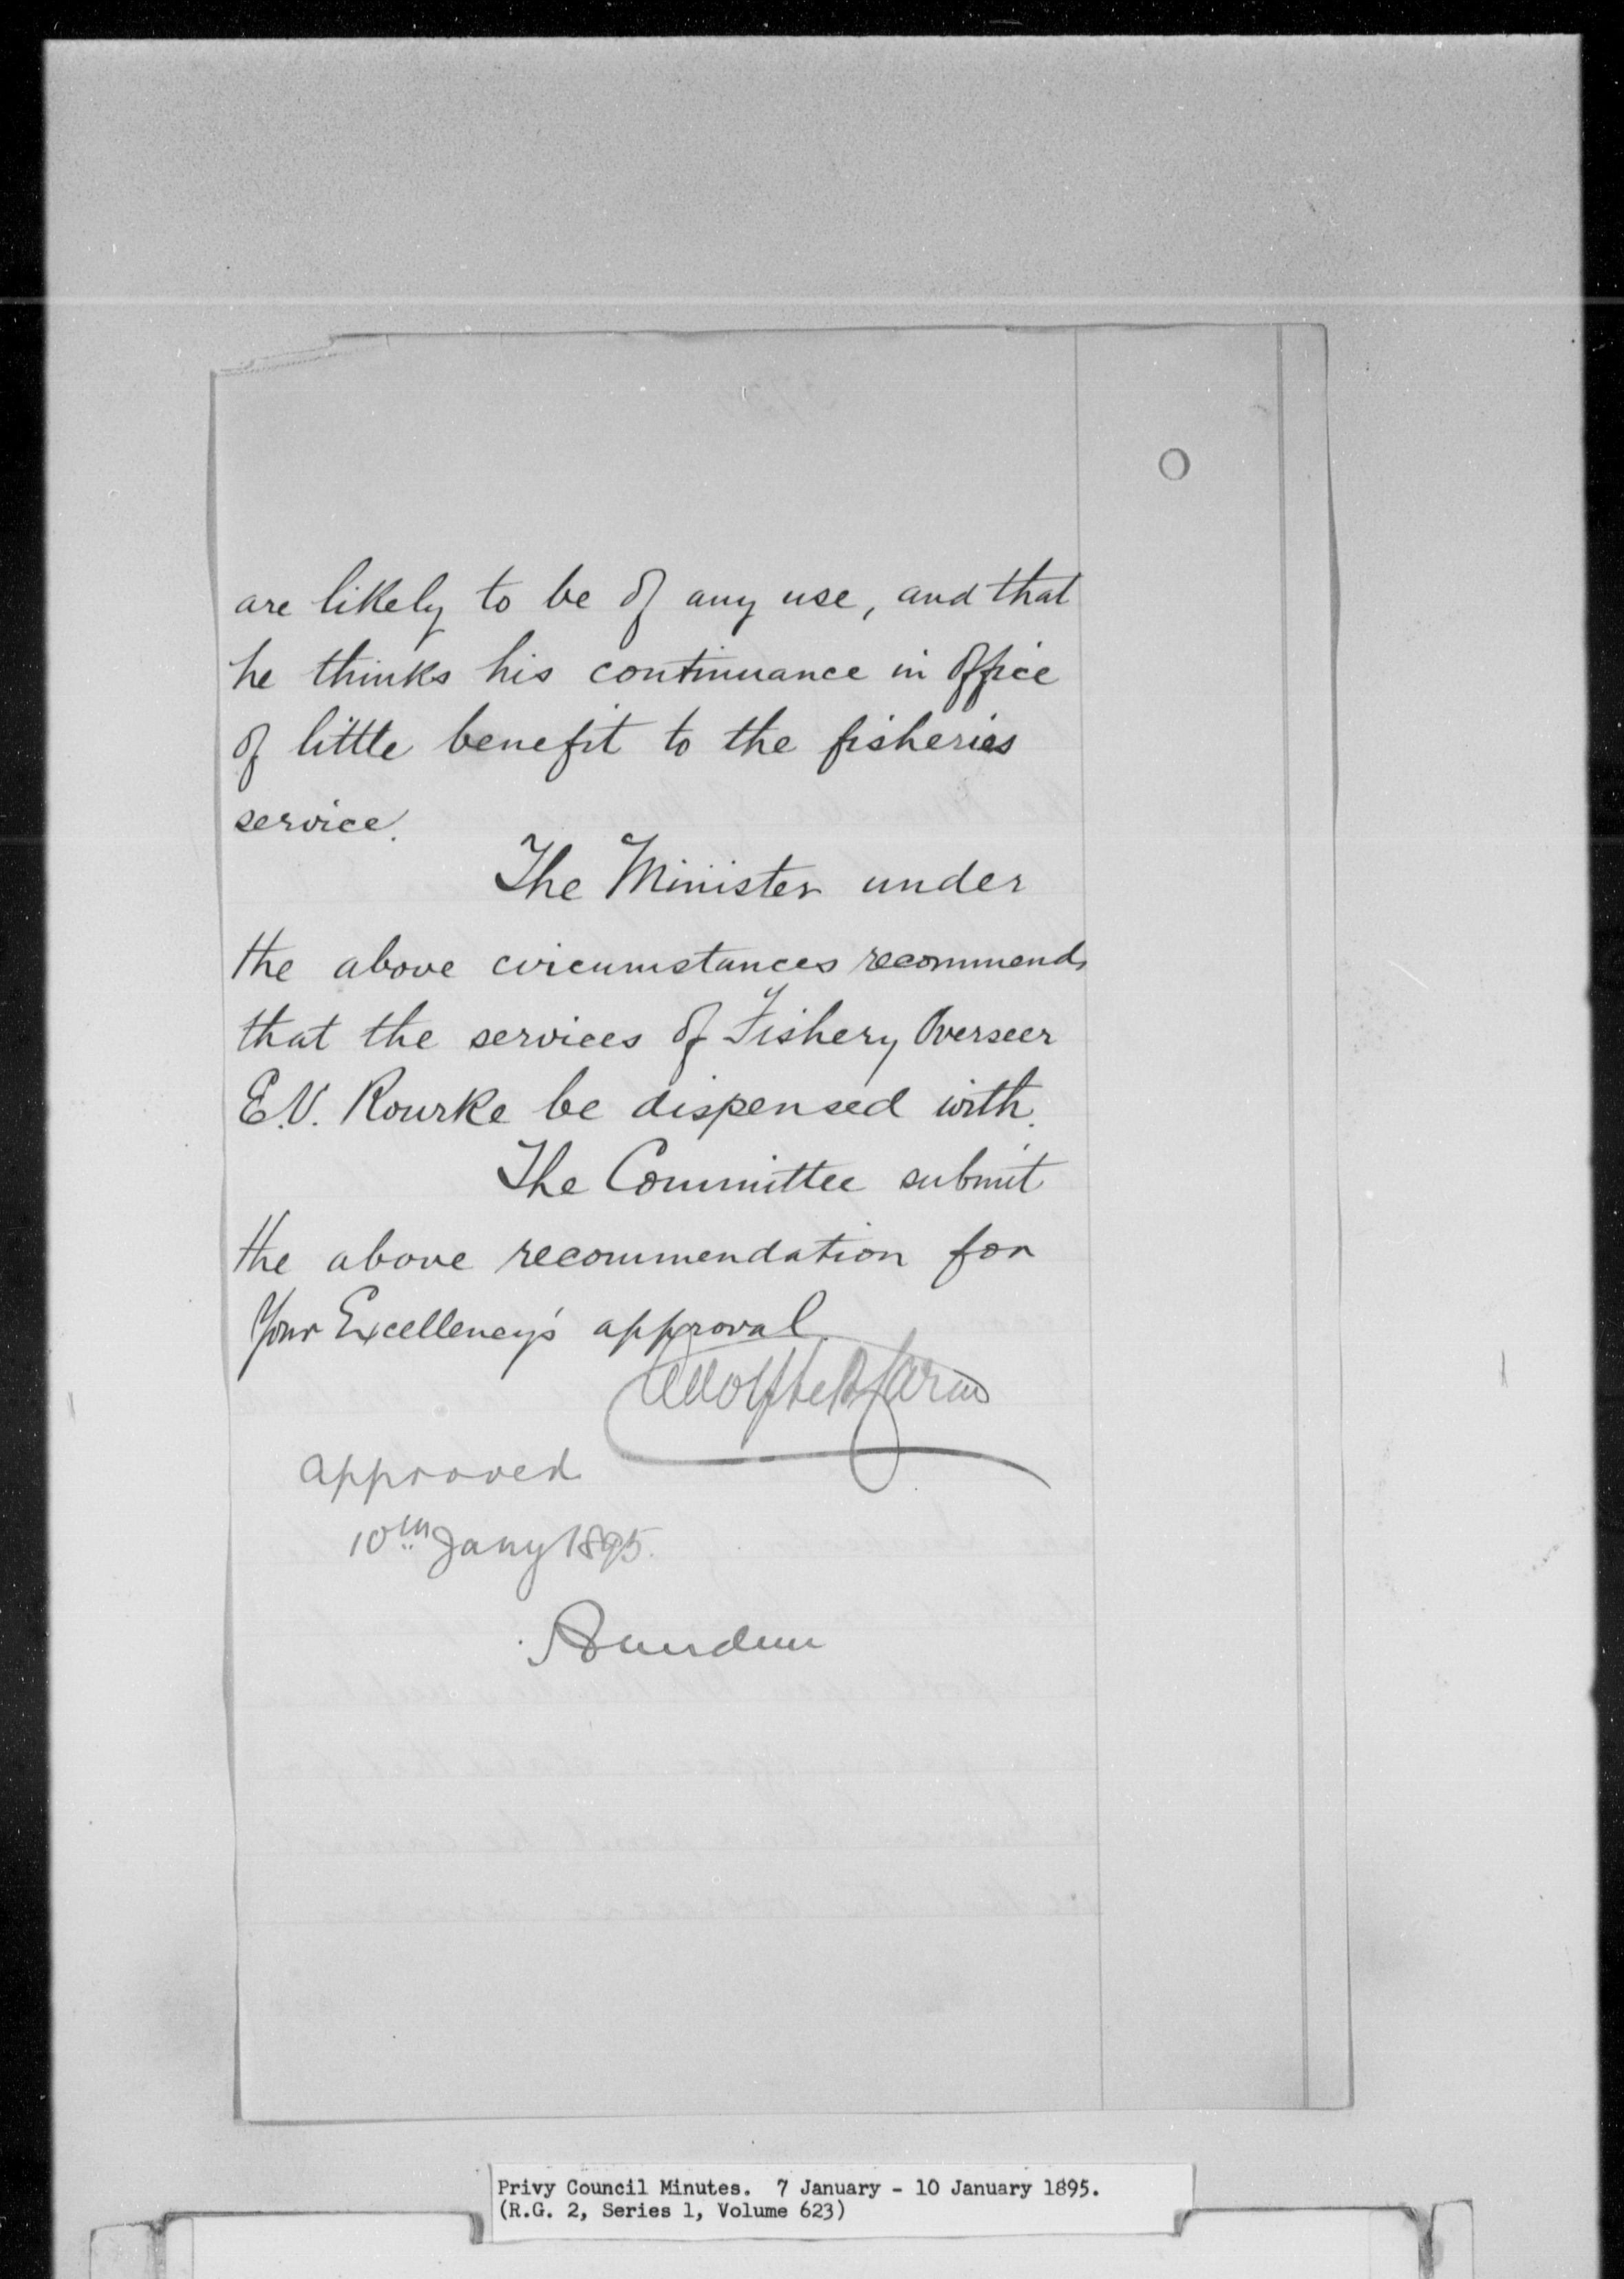 are likely to be of any use, and that
he thinks his continuance in office
of little benefit to the fisheries
service.
The Minister under
the above circumstances recommends
that the services of Fishery Overseer
E.V. Rourke be dispensed with.
The Committee submit
the above recommendation for
Your Excellency's approval.
approved
10th Jany 1895.
Privy Council Minutes. 7 January - 10 January 1895.
(R.G. 2, Series 1, Volume 623)